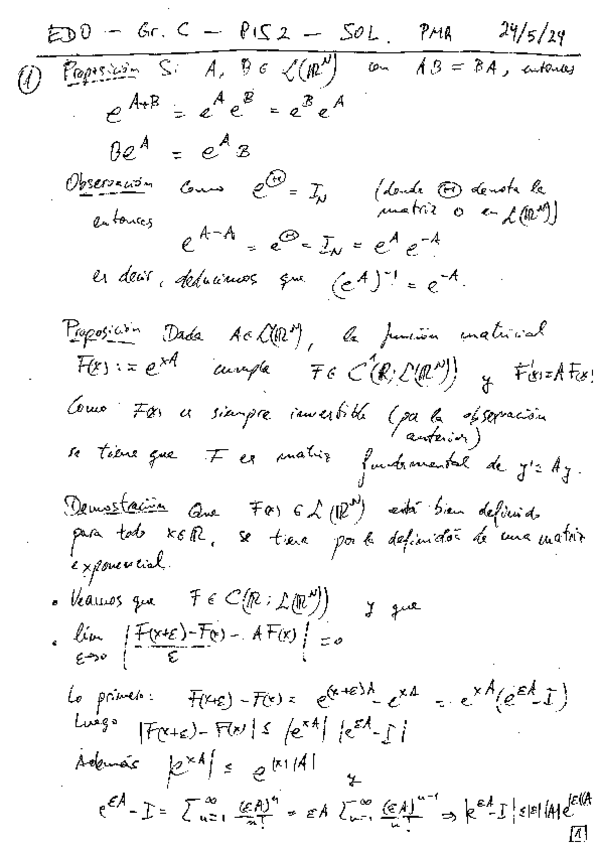 EDO - Gr. C - P1S2 - SOL. PMR 24/5/24
① Proposición Si A, B ∈ L(ℝᴺ) con AB = BA, entonces
e^{A+B} = e^A e^B = e^B e^A
Be^A = e^A B
Observación Como e^Θ = I_N (donde Θ denota la
matriz 0 en L(ℝᴺ))
entonces
e^{A-A} = e^Θ = I_N = e^A e^{-A}
es decir, deducimos que (e^A)^{-1} = e^{-A}.
Proposición Dada A ∈ L(ℝᴺ), la función matricial
F(x) := e^{xA} cumple F ∈ C¹(ℝ; L(ℝᴺ)) y F'(x) = A F(x)
Como F(x) es siempre invertible (por la observación
anterior)
se tiene que F es matriz fundamental de y' = Ay.
Demostración Que F(x) ∈ L(ℝᴺ) está bien definida
para todo x ∈ ℝ, se tiene por la definición de una matriz
exponencial.
• Veamos que F ∈ C(ℝ; L(ℝᴺ)) y que
• lim_{ε→0} | (F(x+ε) - F(x))/ε - A F(x) | = 0
Lo primero: F(x+ε) - F(x) = e^{(x+ε)A} - e^{xA} = e^{xA}(e^{εA} - I)
Luego |F(x+ε) - F(x)| ≤ |e^{xA}| |e^{εA} - I|
Además |e^{xA}| ≤ e^{|x||A|} y
e^{εA} - I = Σ_{n=1}^∞ (εA)^n/n! = εA Σ_{n=1}^∞ (εA)^{n-1}/n! ⇒ |e^{εA} - I| ≤ |ε||A| e^{|ε||A|}
1